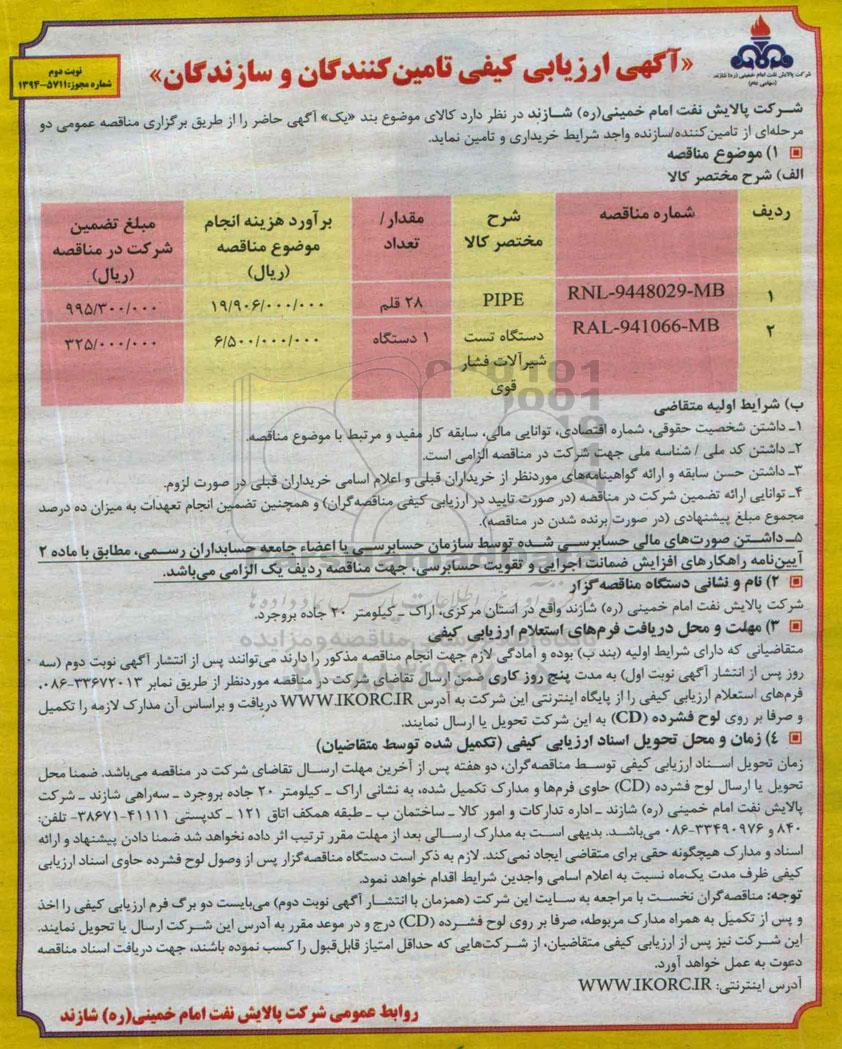 شرکت پالایش نفت امام خمینی (ره) شازند
(سهامی عام)
نوبت دوم
شماره مجوز: ۵۷۱۱-۱۳۹۴
«آگهی ارزیابی کیفی تامین کنندگان و سازندگان»
شرکت پالایش نفت امام خمینی(ره) شازند در نظر دارد کالای موضوع بند «یک» آگهی حاضر را از طریق برگزاری مناقصه عمومی دو
مرحله‌ای از تامین‌کننده/سازنده واجد شرایط خریداری و تامین نماید.
۱) موضوع مناقصه
الف) شرح مختصر کالا
ردیف | شماره مناقصه | شرح مختصر کالا | مقدار/ تعداد | برآورد هزینه انجام موضوع مناقصه (ریال) | مبلغ تضمین شرکت در مناقصه (ریال)
۱ | RNL-9448029-MB | PIPE | ۲۸ قلم | ۱۹/۹۰۶/۰۰۰/۰۰۰ | ۹۹۵/۳۰۰/۰۰۰
۲ | RAL-941066-MB | دستگاه تست شیرآلات فشار قوی | ۱ دستگاه | ۶/۵۰۰/۰۰۰/۰۰۰ | ۳۲۵/۰۰۰/۰۰۰
ب) شرایط اولیه متقاضی
۱ـ داشتن شخصیت حقوقی، شماره اقتصادی، توانایی مالی، سابقه کار مفید و مرتبط با موضوع مناقصه.
۲ـ داشتن کد ملی / شناسه ملی جهت شرکت در مناقصه الزامی است.
۳ـ داشتن حسن سابقه و ارائه گواهینامه‌های موردنظر از خریداران قبلی و اعلام اسامی خریداران قبلی در صورت لزوم.
۴ـ توانایی ارائه تضمین شرکت در مناقصه (در صورت تایید در ارزیابی کیفی مناقصه‌گران) و همچنین تضمین انجام تعهدات به میزان ده درصد
مجموع مبلغ پیشنهادی (در صورت برنده شدن در مناقصه).
۵ـ داشتن صورت‌های مالی حسابرسی شده توسط سازمان حسابرسی یا اعضاء جامعه حسابداران رسمی، مطابق با ماده ۲
آیین‌نامه راهکارهای افزایش ضمانت اجرایی و تقویت حسابرسی، جهت مناقصه ردیف یک الزامی می‌باشد.
۲) نام و نشانی دستگاه مناقصه‌گزار
شرکت پالایش نفت امام خمینی (ره) شازند واقع در استان مرکزی، اراک ـ کیلومتر ۲۰ جاده بروجرد.
۳) مهلت و محل دریافت فرم‌های استعلام ارزیابی کیفی
متقاضیانی که دارای شرایط اولیه (بند ب) بوده و آمادگی لازم جهت انجام مناقصه مذکور را دارند می‌توانند پس از انتشار آگهی نوبت دوم (سه
روز پس از انتشار آگهی نوبت اول) به مدت پنج روز کاری ضمن ارسال تقاضای شرکت در مناقصه موردنظر از طریق نمابر ۳۳۶۷۲۰۱۳-۰۸۶،
فرم‌های استعلام ارزیابی کیفی را از پایگاه اینترنتی این شرکت به آدرس WWW.IKORC.IR دریافت و براساس آن مدارک لازمه را تکمیل
و صرفا بر روی لوح فشرده (CD) به این شرکت تحویل یا ارسال نمایند.
۴) زمان و محل تحویل اسناد ارزیابی کیفی (تکمیل شده توسط متقاضیان)
زمان تحویل اسناد ارزیابی کیفی توسط مناقصه‌گران، دو هفته پس از آخرین مهلت ارسال تقاضای شرکت در مناقصه می‌باشد. ضمنا محل
تحویل یا ارسال لوح فشرده (CD) حاوی فرم‌ها و مدارک تکمیل شده، به نشانی اراک ـ کیلومتر ۲۰ جاده بروجرد ـ سه‌راهی شازند ـ شرکت
پالایش نفت امام خمینی (ره) شازند ـ اداره تدارکات و امور کالا ـ ساختمان ب ـ طبقه همکف اتاق ۱۲۱ ـ کدپستی ۴۱۱۱۱-۳۸۶۷۱- تلفن:
۸۴۰ و ۳۳۴۹۰۹۷۶-۰۸۶ می‌باشد. بدیهی است به مدارک ارسالی بعد از مهلت مقرر ترتیب اثر داده نخواهد شد ضمنا دادن پیشنهاد و ارائه
اسناد و مدارک هیچگونه حقی برای متقاضی ایجاد نمی‌کند. لازم به ذکر است دستگاه مناقصه‌گزار پس از وصول لوح فشرده حاوی اسناد ارزیابی
کیفی ظرف مدت یک‌ماه نسبت به اعلام اسامی واجدین شرایط اقدام خواهد نمود.
توجه: مناقصه‌گران نخست با مراجعه به سایت این شرکت (همزمان با انتشار آگهی نوبت دوم) می‌بایست دو برگ فرم ارزیابی کیفی را اخذ
و پس از تکمیل به همراه مدارک مربوطه، صرفا بر روی لوح فشرده (CD) درج و در موعد مقرر به آدرس این شرکت ارسال یا تحویل نمایند.
این شرکت نیز پس از ارزیابی کیفی متقاضیان، از شرکت‌هایی که حداقل امتیاز قابل‌قبول را کسب نموده باشند، جهت دریافت اسناد مناقصه
دعوت به عمل خواهد آورد.
آدرس اینترنتی: WWW.IKORC.IR
روابط عمومی شرکت پالایش نفت امام خمینی(ره) شازند